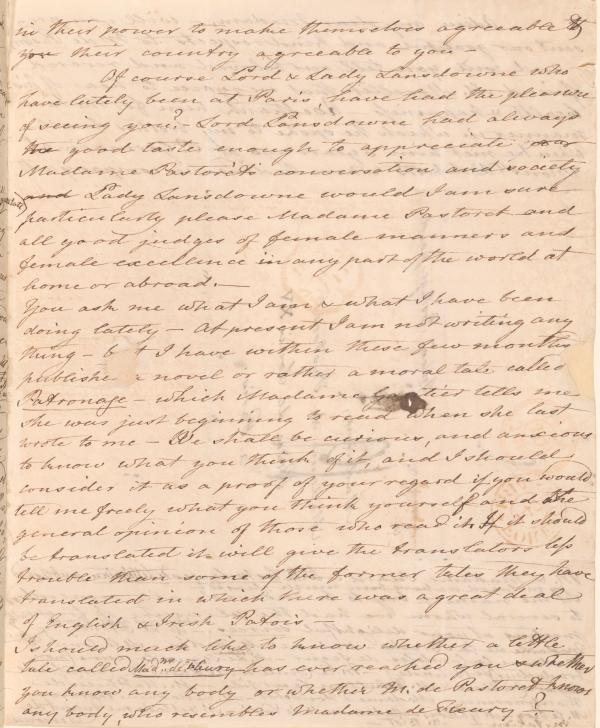 in their power to make themselves agreeable &
their country agreeable to you –
Of course Lord & Lady Lansdowne who
have lately been at Paris, have had the pleasure
of seeing you? – Lord Lansdowne had always
the good taste enough to appreciate
Madame Pastoret's conversation and society
and Lady Lansdowne would I am sure
particularly please Madame Pastoret and
all good judges of female manners and
female excellence in any part of the world at
home or abroad. –
You ask me what I am & what I have been
doing lately – At present I am not writing any
thing – b t I have within these few months
publishe a novel or rather a moral tale called
Patronage – which Madame G tier tells me
she was just beginning to read when she last
wrote to me – We shall be curious, and anxious
to know what you think of it, and I should
consider it as a proof of your regard if you would
tell me freely what you think yourself and the
general opinion of those who read it. If it should
be translated it will give the translators less
trouble than some of the former tales they have
translated in which there was a great deal
of English & Irish Patois –
I should much like to know whether a little
tale called Madme de Fleury has ever reached you & whether
you know any body or whether M. de Pastoret knows
any body who resembles Madame de Fleury – ?